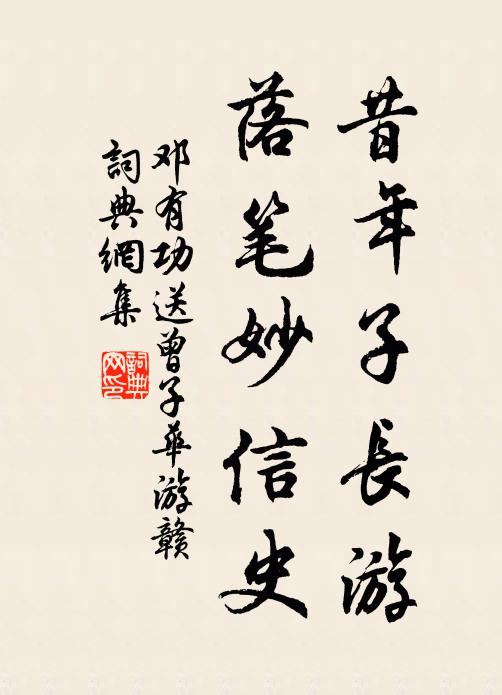 昔年子長游
落笔妙信史
邓有功送曾子華游赣
詞典網集
詞典网印